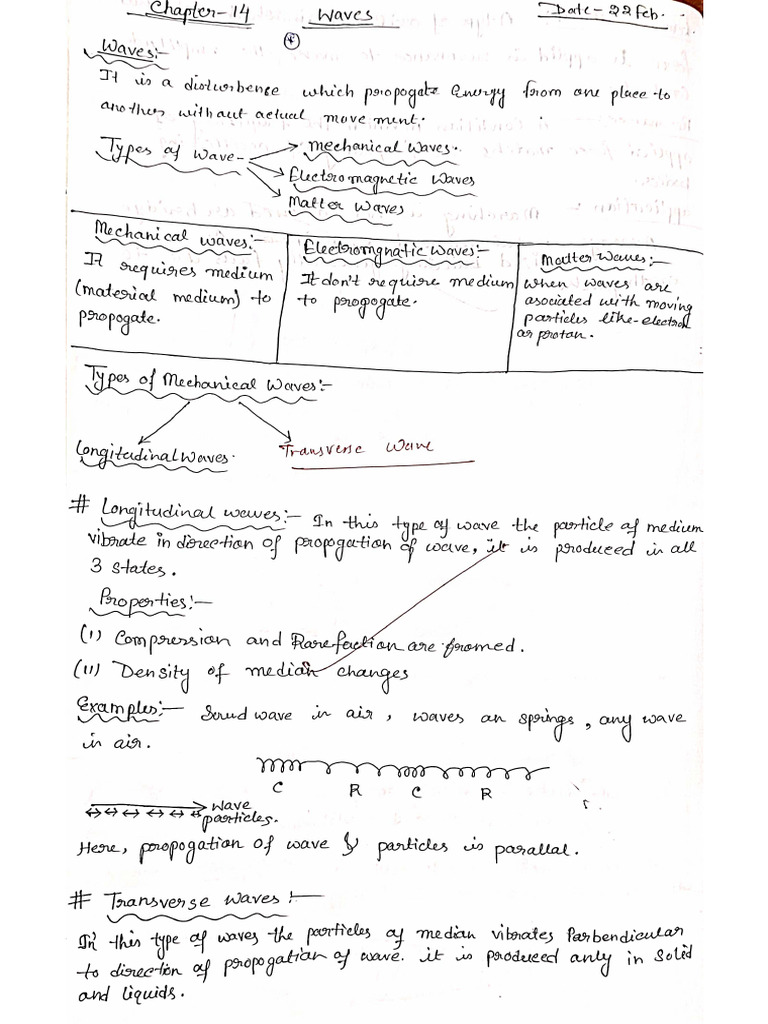 Chapter-14 Waves Date-22 Feb.
Waves:-
It is a disturbense which propogate Energy from one place to
another without actual move ment.
Types of Wave-
Mechanical Waves.
Electromagnetic Waves
Matter Waves
Mechanical waves:-
It requires medium
(material medium) to
propogate.
Electromgnatic Waves:-
It don't require medium
to progogate.
Matter Waves:-
When waves are
asociated with moving
particles like-electron
or proton.
Types of Mechanical Waves:-
Longitudinal Waves. Transverse Wave
# Longitudinal waves:- In this type of wave the particle of medium
vibrate in direction of propogation of wave, it is produced in all
3 states.
Properties:-
(i) Compression and Rarefaction are fromed.
(ii) Density of median changes
Examples:- Sound wave in air, waves on springs, any wave
in air.
C R C R
wave
particles.
Here, propogation of wave & particles is parallal.
# Transverse waves:-
In this type of waves the particles of median vibrates Parbendicular
to direction of propogation of wave. it is produced only in Solid
and liquids.